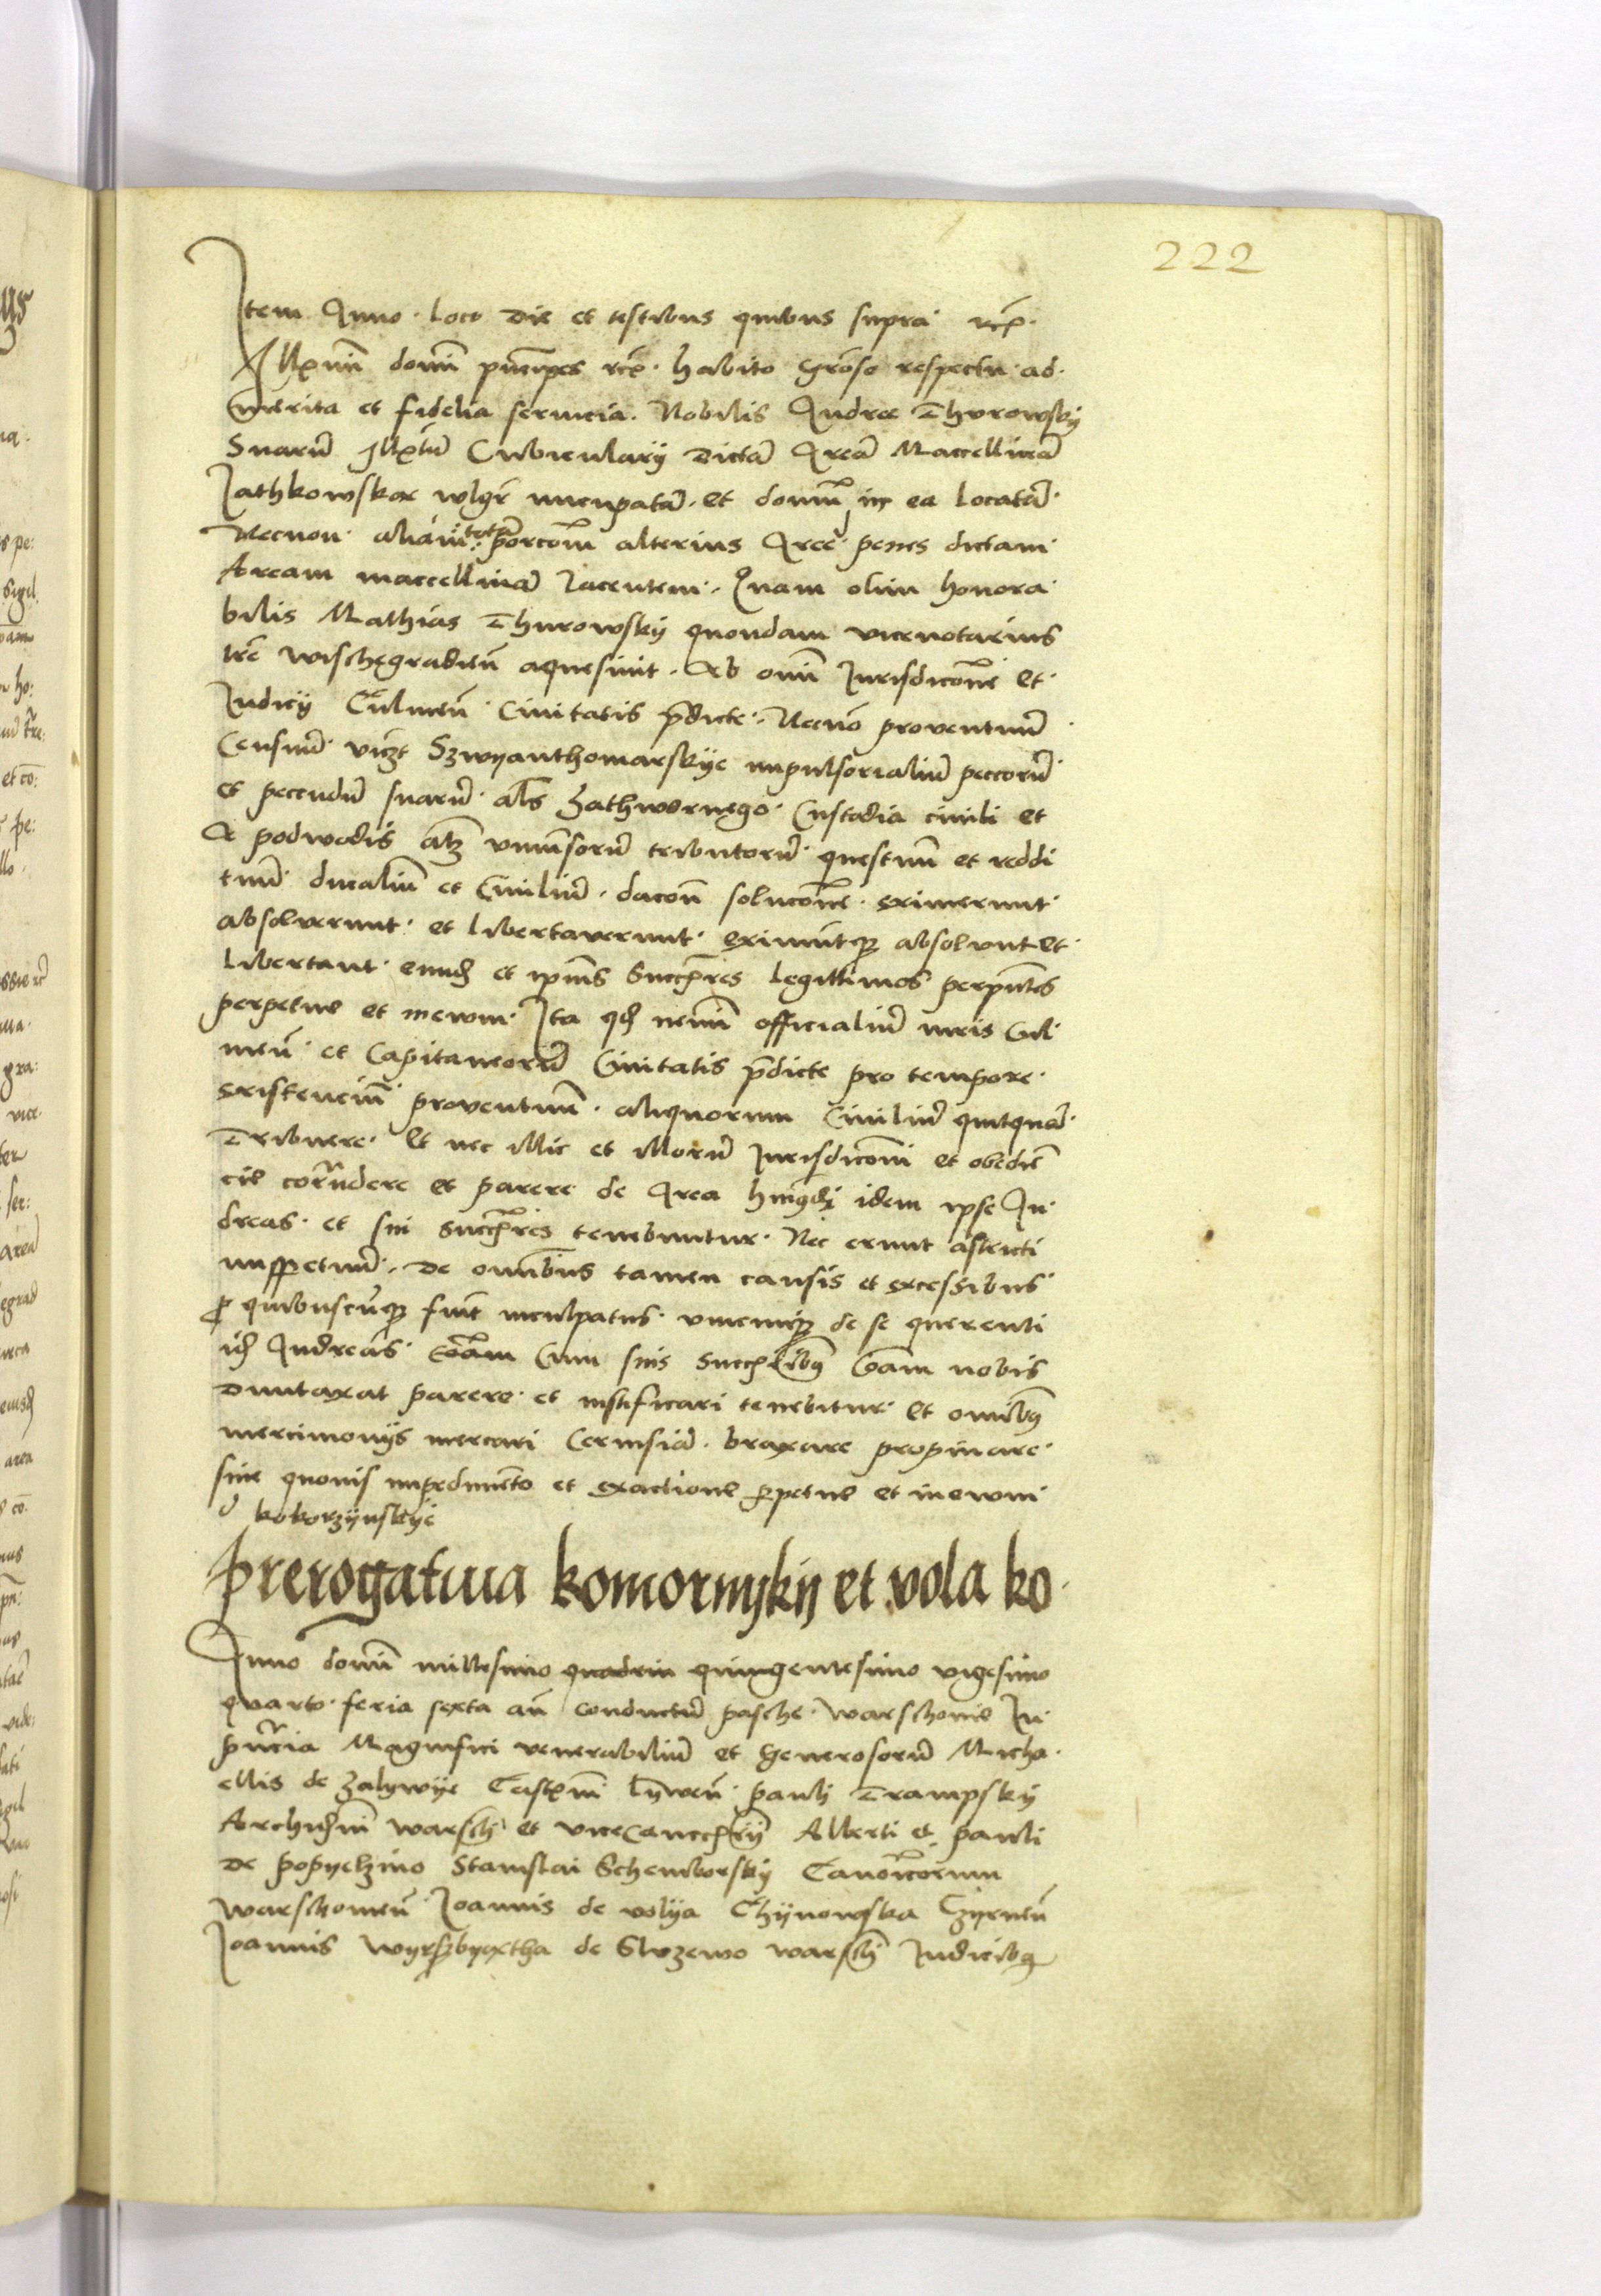 222
Item Anno loco die et testibus quibus supra etc.
Illmi domi principes etc. habito groso respectu ad
merita et fidelia servicia Nobilis Andree Thurowsky
Suarum Cubiculary dictam Aream Maccellineam
Iathkowskae wlgr nucupatam et domum in ea locatam
Necnon aliam totam porcom alterius Aree penes dictam
Aream maccellineam Iacentem. Quam olim honora
bilis Mathias Thurowsky quondam vicenotarius
tre wischegradien aquesiuit. Ab omi Iurisdicone et
Iudicy Culmen Civitatis pdicte. Necno proventuum
Censuum vicz Szwyanthomarskye impulsorialium peccorum
et pecudum suarum als Zathwornego. Custodia civili et
A podwodis atz universorum tributorum questuum et reddi
tuum ducalium et Civilium. dacom solucone exemerunt
absolverunt et libertaverunt eximuntque absolvunt et
libertant eund et ipius Succres legittimos perpnts
perpetue et in ewm. Ita qd nemi officialium iuris Cul
men et Capitaneorum Civitatis pdicte pro tempore
existencim proventuum aliquorum Civilium quitquam
Tribuere. Et nec illic et illorum Iurisdiconi et obedien
cie cornidere et parere de Area idem ipse An
dreas et sui succres tenebuntur. Nec erunt astricti
impetuum. de omibus tamen causis et excessibus
p quibuscumque fuit inculpatus unicuique de se querenti
id Andreas Coram Cum suis succribus Coram nobis
duntaxat parere et iustificari tenebitur Et omibus
mercimonys mercari Cervisiam braxare propinare
sine quovis impedimento et exactione perpetue et in ewm
kokorzynskye
Prerogatiua komornyky et vola ko
Anno domi millesimo quadrin quingentesimo vigesimo
quarto feria sexta an conductum pasche Warschovie In
pncia Magnifici venerabilium et Generosorum Micha
ellis de Zalywye Castni lywen pauli Trampsky
Archidni warsch et vicecancrij Alberti et pauli
de popyelzino Stanislai Schemborsky Canoicorum
warschovien Ioannis de volya Chynowska Czyrnen
Ioannis wyrszbyatha de Sluzewo warsch Iudicibus